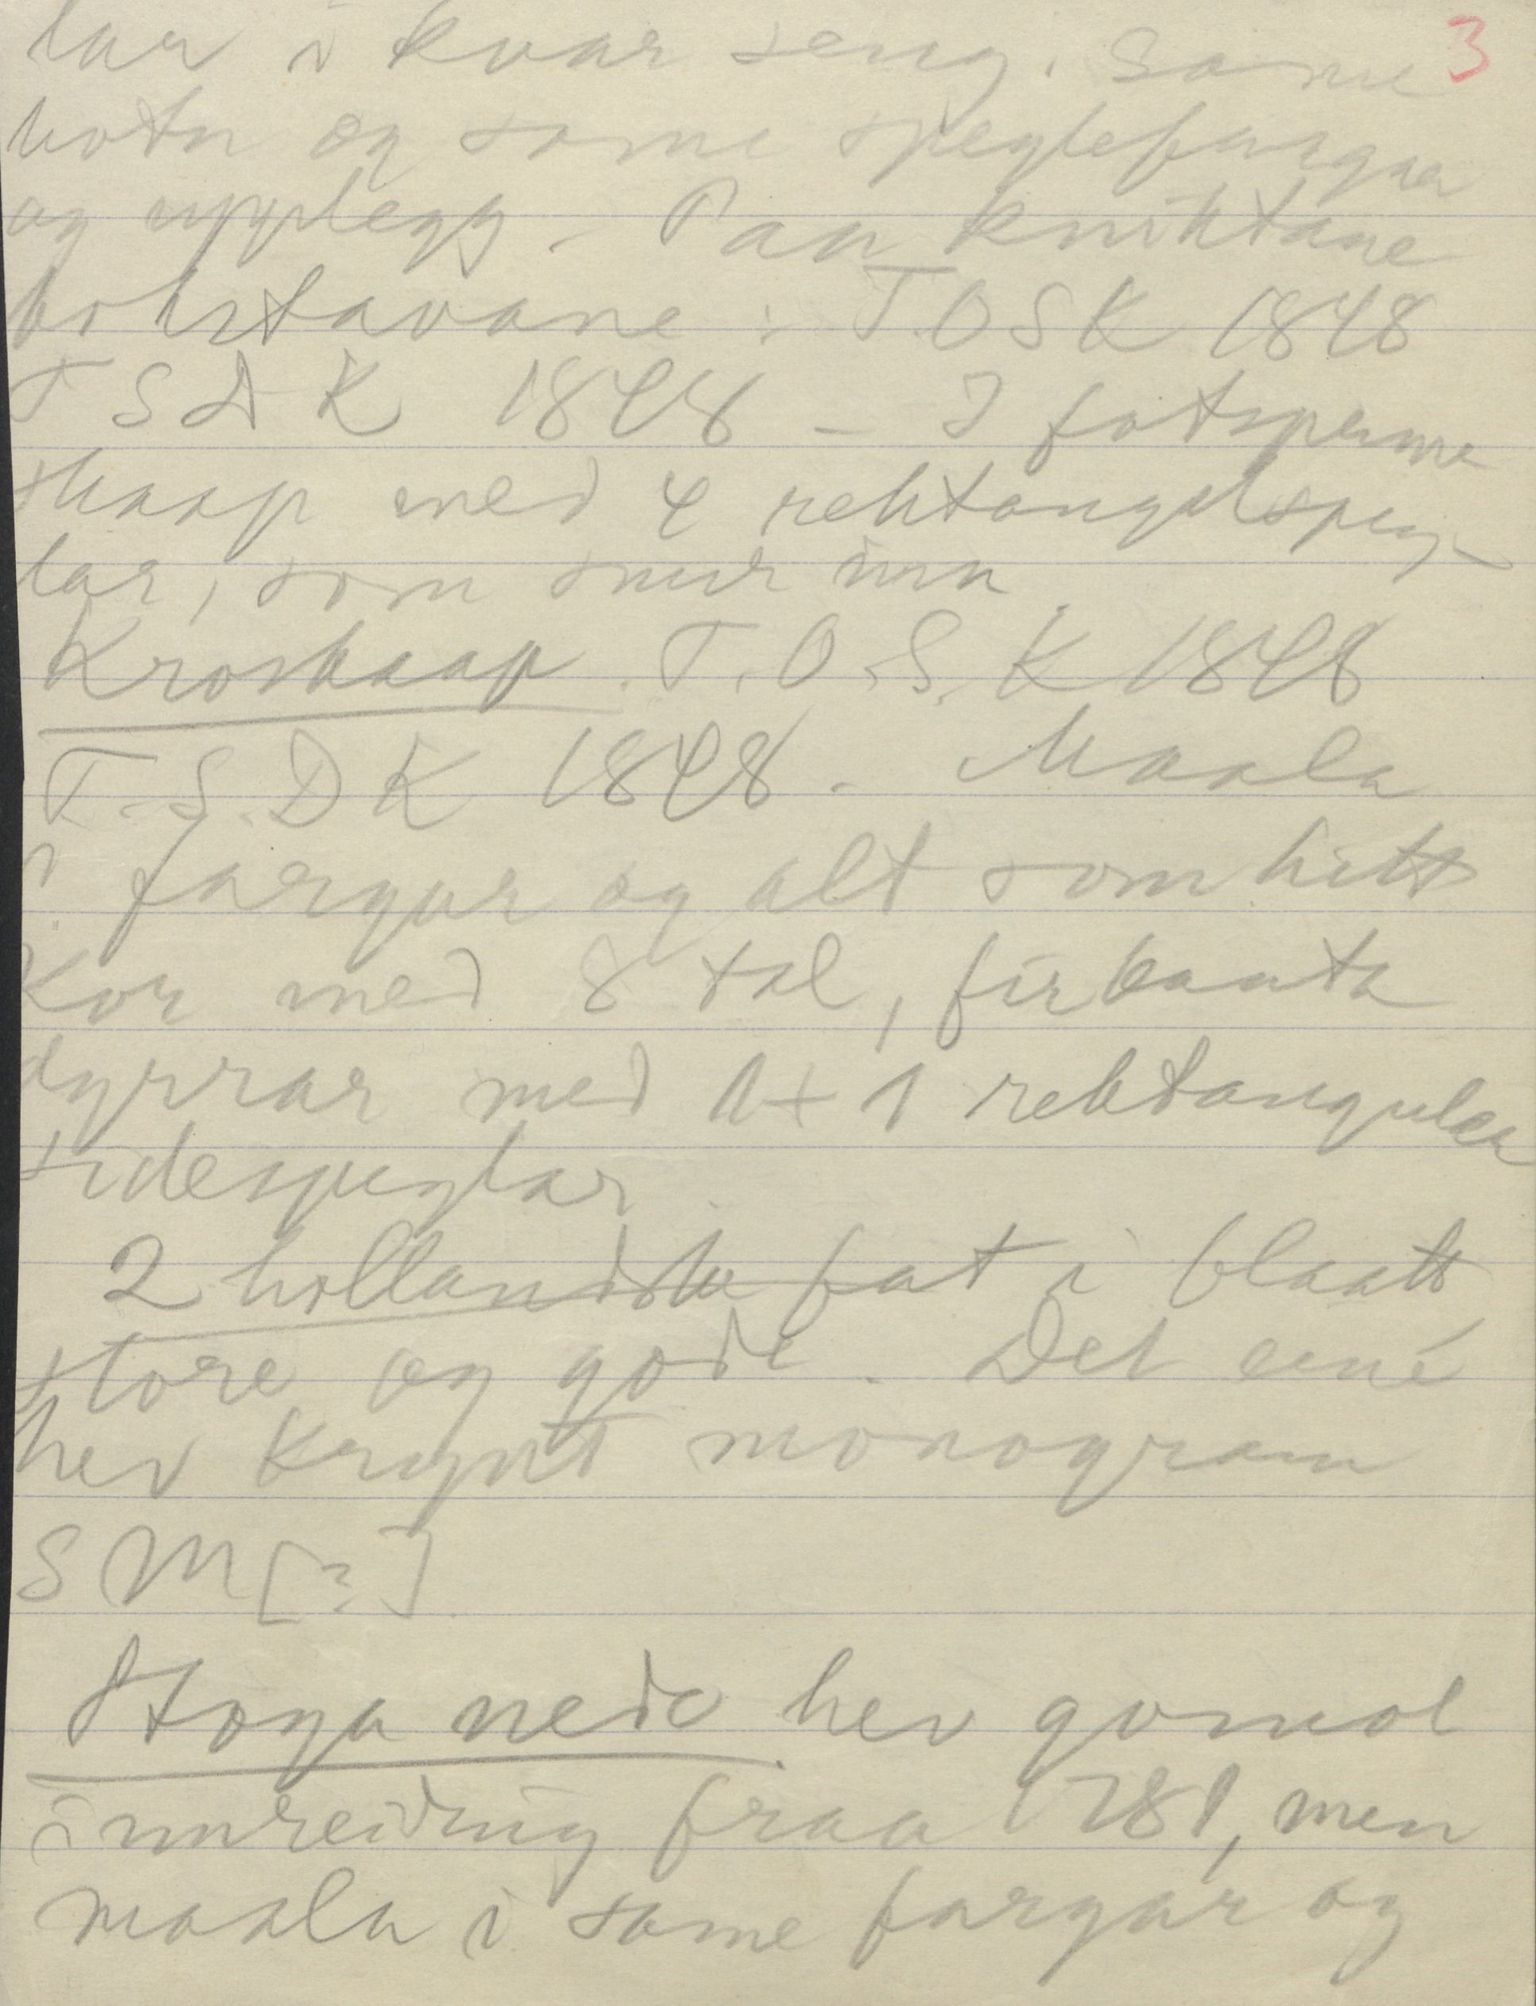 lar i kvar seng. Same 3
botn og same speglefargar
og upplegg. Paa knöktane
bokstavane: T.O S K 1848
T S D K 1848 – I fotsperrene
skaap med 4 rektangelspeg-
lar, som snur inn.
Kroskaap. T.O.S.K 1848
T.S.D K 1848. Maala
i fargar og alt som hitt
Kor med 8 tal, firkanta
dyrrar med 1+1 rektangulær
sidespeglar.
2 hollandske fat i blaatt
store og gode. Det eine
hev krynt monogram
S M [?]
Stoga nede hev gamal
innreiding fraa 1781, men
maala i same fargar og